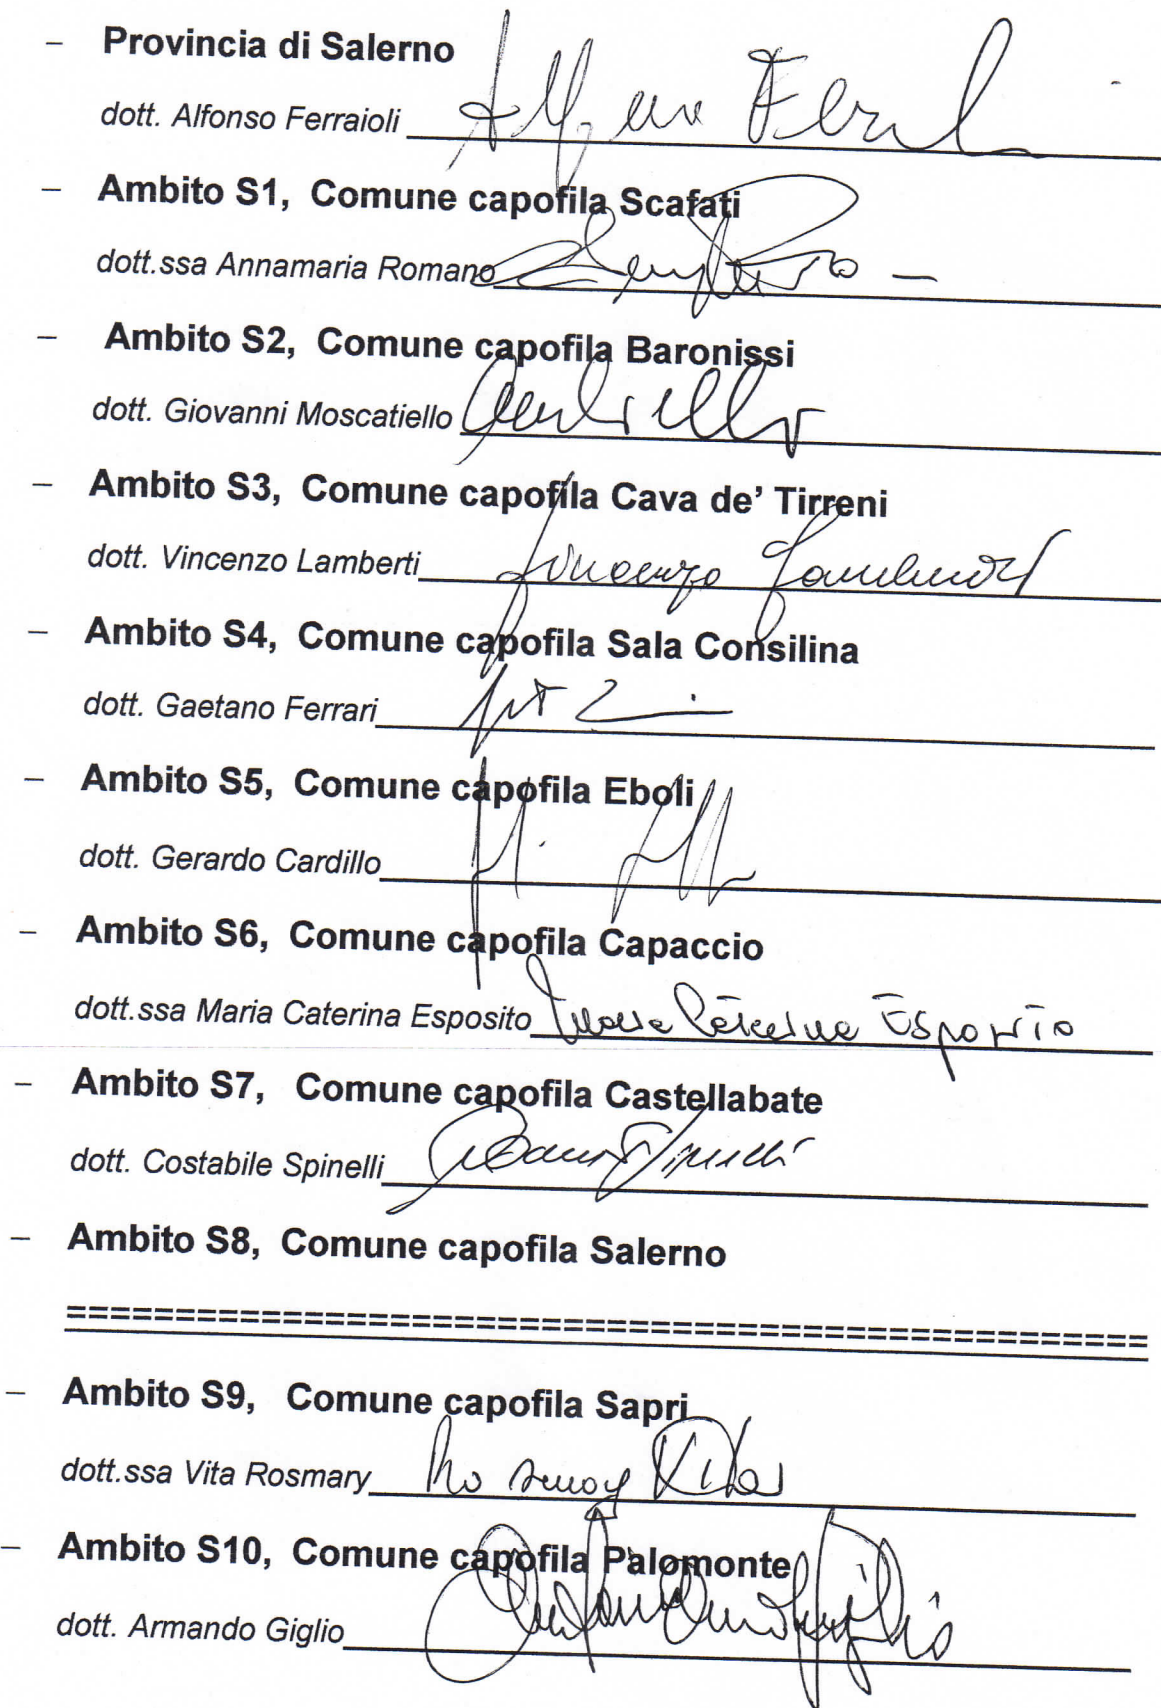 – Provincia di Salerno
dott. Alfonso Ferraioli
– Ambito S1, Comune capofila Scafati
dott.ssa Annamaria Romano
– Ambito S2, Comune capofila Baronissi
dott. Giovanni Moscatiello
– Ambito S3, Comune capofila Cava de’ Tirreni
dott. Vincenzo Lamberti Vincenzo Lamberti
– Ambito S4, Comune capofila Sala Consilina
dott. Gaetano Ferrari
– Ambito S5, Comune capofila Eboli
dott. Gerardo Cardillo
– Ambito S6, Comune capofila Capaccio
dott.ssa Maria Caterina Esposito Maria Caterina Esposito
– Ambito S7, Comune capofila Castellabate
dott. Costabile Spinelli
– Ambito S8, Comune capofila Salerno
==================================================
– Ambito S9, Comune capofila Sapri
dott.ssa Vita Rosmary Rosmary Vita
– Ambito S10, Comune capofila Palomonte
dott. Armando Giglio